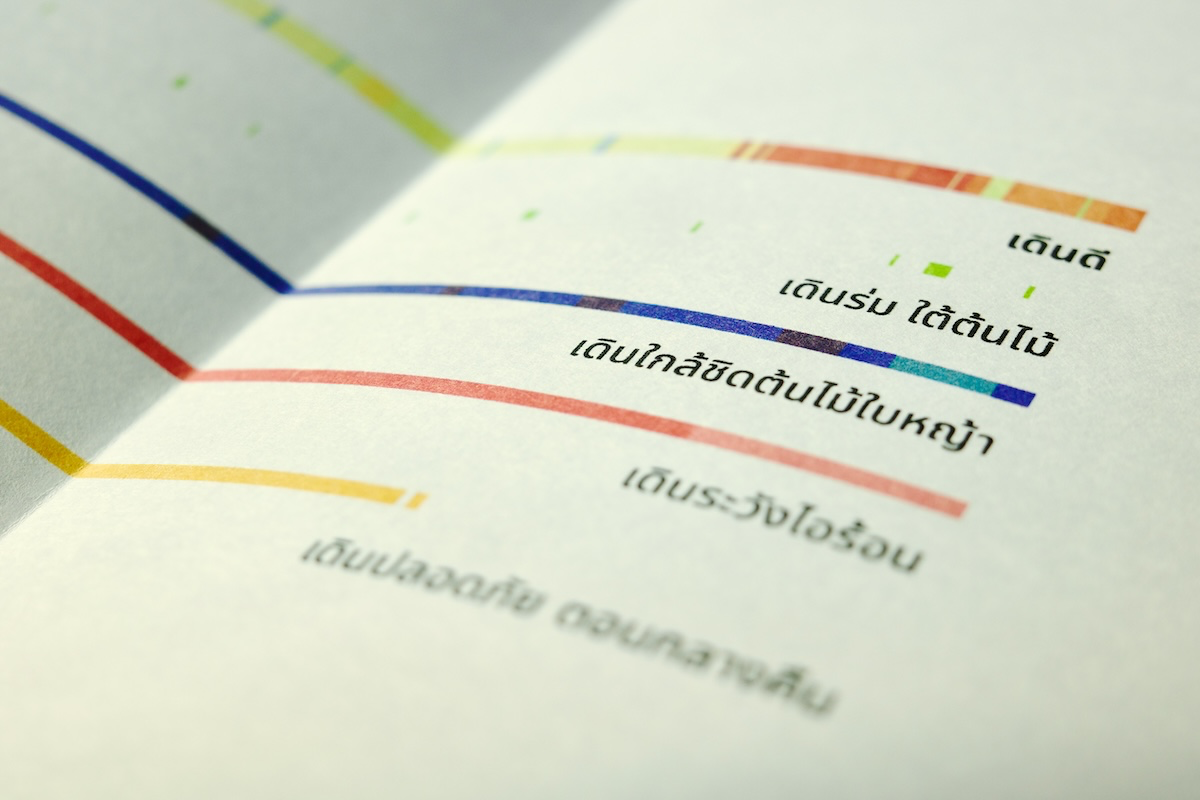 เดินดี
เดินร่ม ใต้ต้นไม้
เดินใกล้ชิดต้นไม้ใบหญ้า
เดินระวังไอร้อน
เดินปลอดภัย ตอนกลางคืน